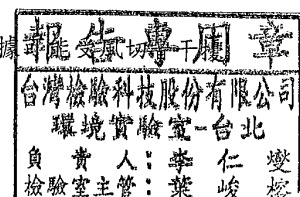 報告專用章
據可能受風切等干擾
台灣檢驗科技股份有限公司
環境實驗室-台北
負責人：李仁燮
檢驗室主管：葉峻榕